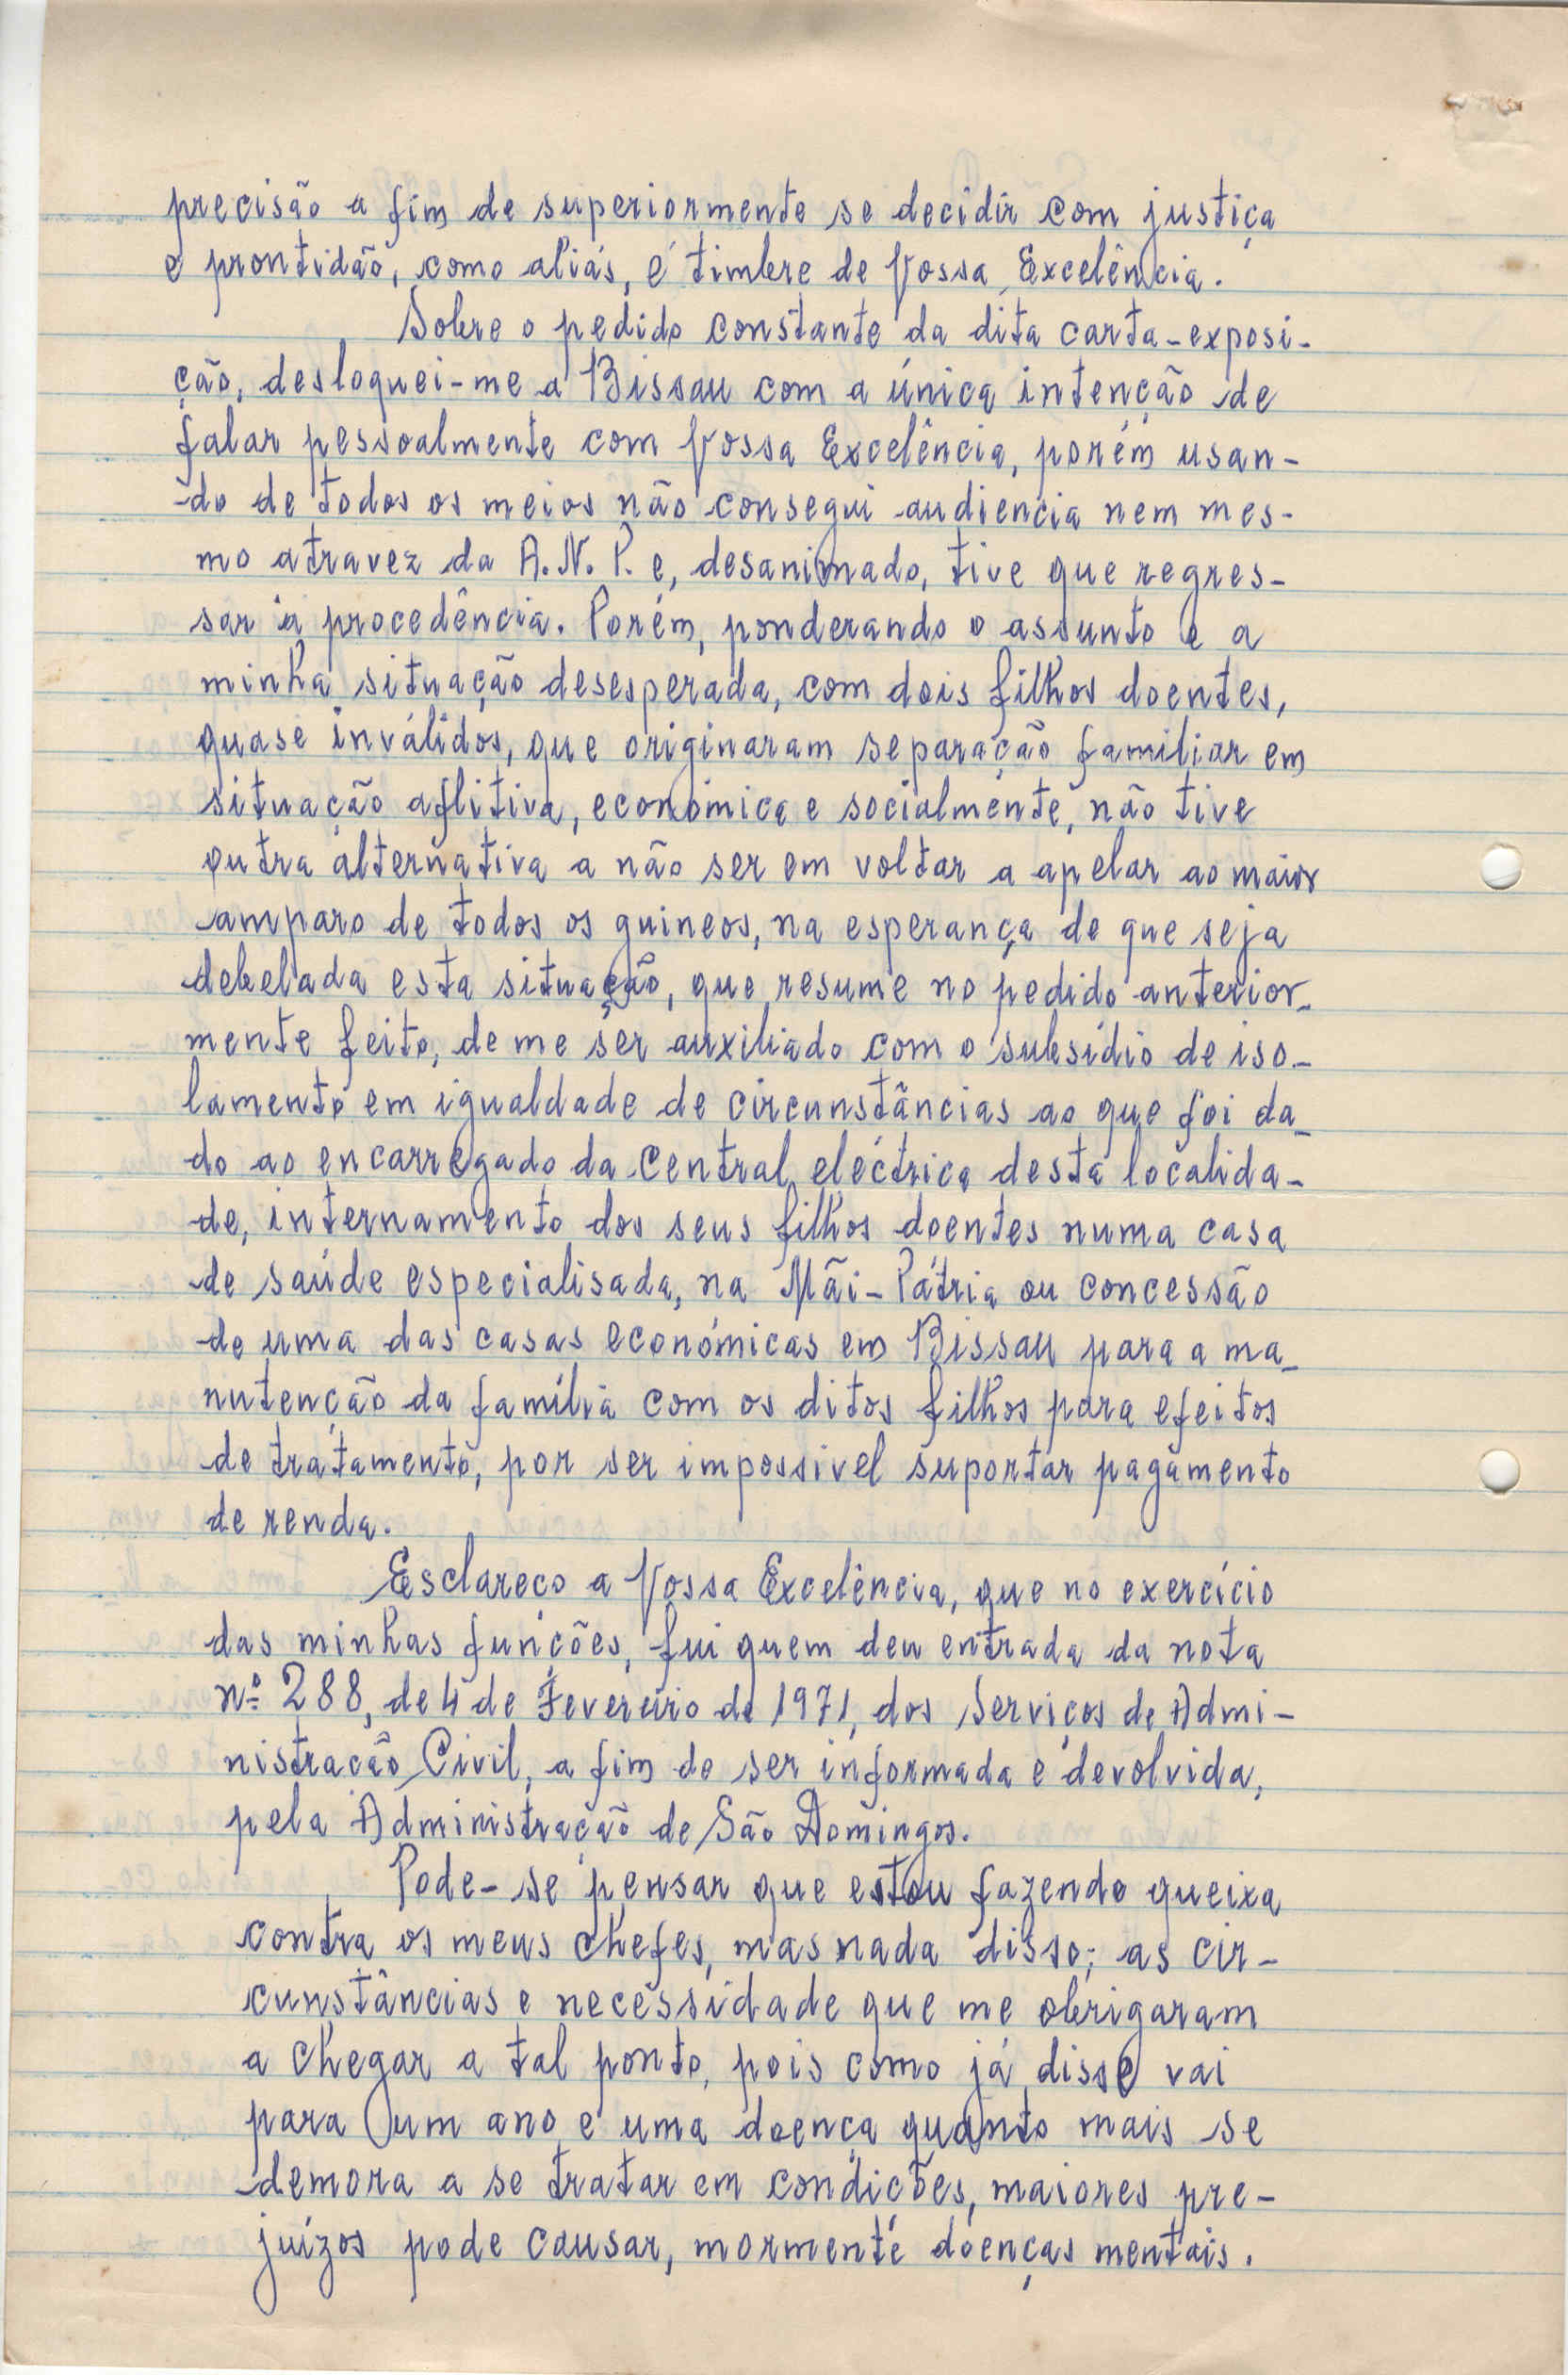 precisão a fim de superiormente se decidir com justiça
e prontidão, como aliás, é timbre de Vossa Excelência.
Sobre o pedido constante da dita carta-exposi-
ção, desloquei-me a Bissau com a única intenção de
falar pessoalmente com Vossa Excelência, porém usan-
do de todos os meios não consegui audiência nem mes-
mo atravez da A.N.P. e, desanimado, tive que regres-
sar à procedência. Porém, ponderando o assunto e a
minha situação desesperada, com dois filhos doentes,
quase inválidos, que originaram separação familiar em
situação aflitiva, económica e socialmente, não tive
outra alternativa a não ser em voltar a apelar ao maior
amparo de todos os guineos, na esperança de que seja
debelada esta situação, que resume no pedido anterior-
mente feito, de me ser auxiliado com o subsídio de iso-
lamento em igualdade de circunstâncias ao que foi da-
do ao encarregado da central eléctrica desta localida-
de, internamento dos seus filhos doentes numa casa
de saúde especialisada, na Mãi-Pátria ou concessão
de uma das casas económicas em Bissau para a ma-
nutenção da família com os ditos filhos para efeitos
de tratamento, por ser impossivel suportar pagamento
de renda.
Esclareço a Vossa Excelência, que no exercício
das minhas funções, fui quem deu entrada da nota
nº 288, de 4 de Fevereiro de 1971, dos Serviços de Admi-
nistração Civil, a fim de ser informada e devolvida,
pela Administração de São Domingos.
Pode-se pensar que estou fazendo queixa
contra os meus chefes, mas nada disso; as cir-
cunstâncias e necessidade que me obrigaram
a chegar a tal ponto, pois como já disse vai
para um ano e uma doença quanto mais se
demora a se tratar em condições, maiores pre-
juízos pode causar, mormente doenças mentais.